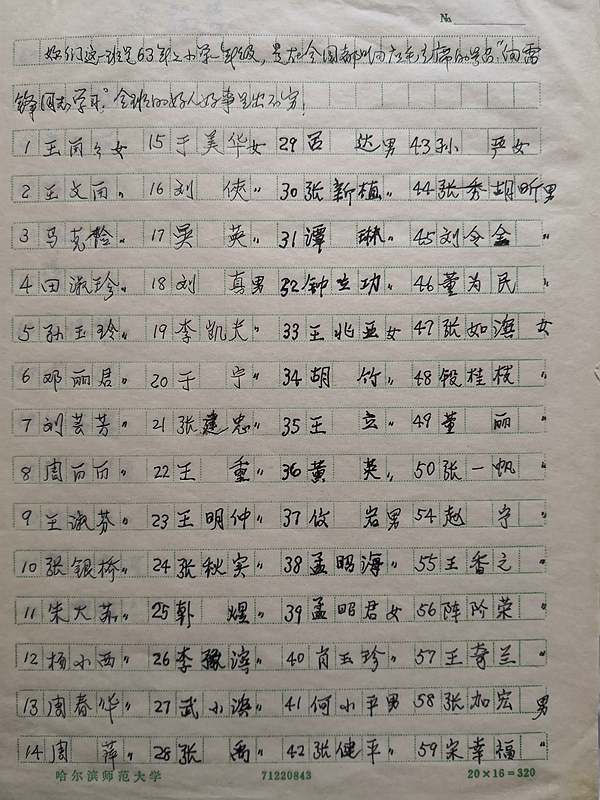 №
我们这一班是63年上小学一年级，是在全国都响应毛主席的号召"向雷
锋同志学习"全班的好人好事层出不穷！
1 王雨 女 15 于美华女 29 吕 达男 43 孙 严女
2 王文雨〃 16 刘 侠〃 30 张新植〃 44 张秀胡昕男
3 马克 〃 17 吴 英〃 31 谭 琳〃 45 刘令全〃
4 田淑珍〃 18 刘 真男 32 钟立功〃 46 董为民
5 孙玉玲〃 19 李凯夫〃 33 王兆亚女 47 张如滨 女
6 邓丽君〃 20 于 宁〃 34 胡 竹〃 48 段桂枝〃
7 刘芸芳〃 21 张建忠〃 35 王 立〃 49 董 丽〃
8 周 〃 22 王 重〃 36 黄 英〃 50 张一帆〃
9 王淑芬〃 23 王明仲〃 37 岩男 54 赵 宁〃
10 张银桥〃 24 张秋实〃 38 孟昭海〃 55 王香之〃
11 朱大苏〃 25 韩 煜〃 39 孟昭君女 56 阵阶荣〃
12 杨小西〃 26 李豫滨〃 40 肖玉珍〃 57 王奇兰〃
13 周春华〃 27 武小滨〃 41 何小平男 58 张加宏 男
14 周 萍〃 28 张 禹〃 42 张健平〃 59 宋幸福〃
哈尔滨师范大学 71220843 20×16=320